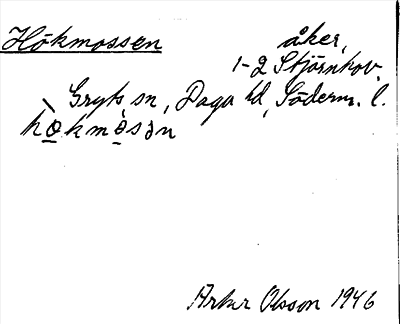 Hökmossen åker,
1-2 Stjärnhov,
Gryts sn, Daga hd, Söderm. l.
hö̱̀kmò̱sən
Artur Olsson 1946